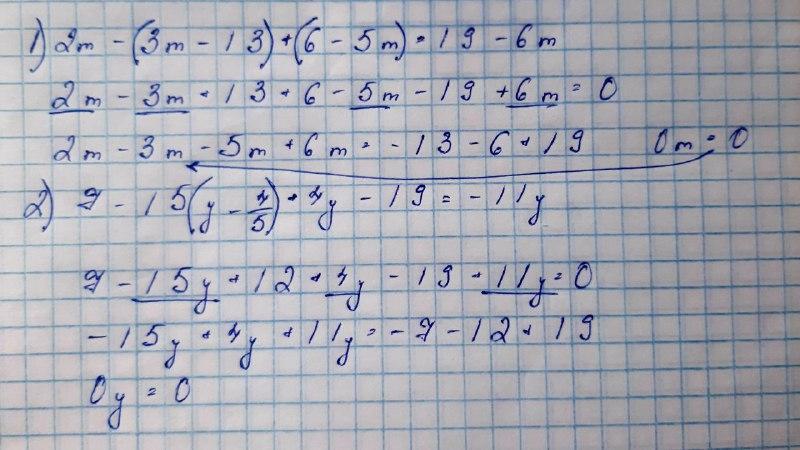 1) 2m - (3m - 13) + (6 - 5m) = 19 - 6m
2m - 3m + 13 + 6 - 5m - 19 + 6m = 0
2m - 3m - 5m + 6m = -13 - 6 + 19 0m = 0
2) 7 - 15(y - 4/5) + 4y - 19 = -11y
7 - 15y + 12 + 4y - 19 + 11y = 0
-15y + 4y + 11y = -7 - 12 + 19
0y = 0